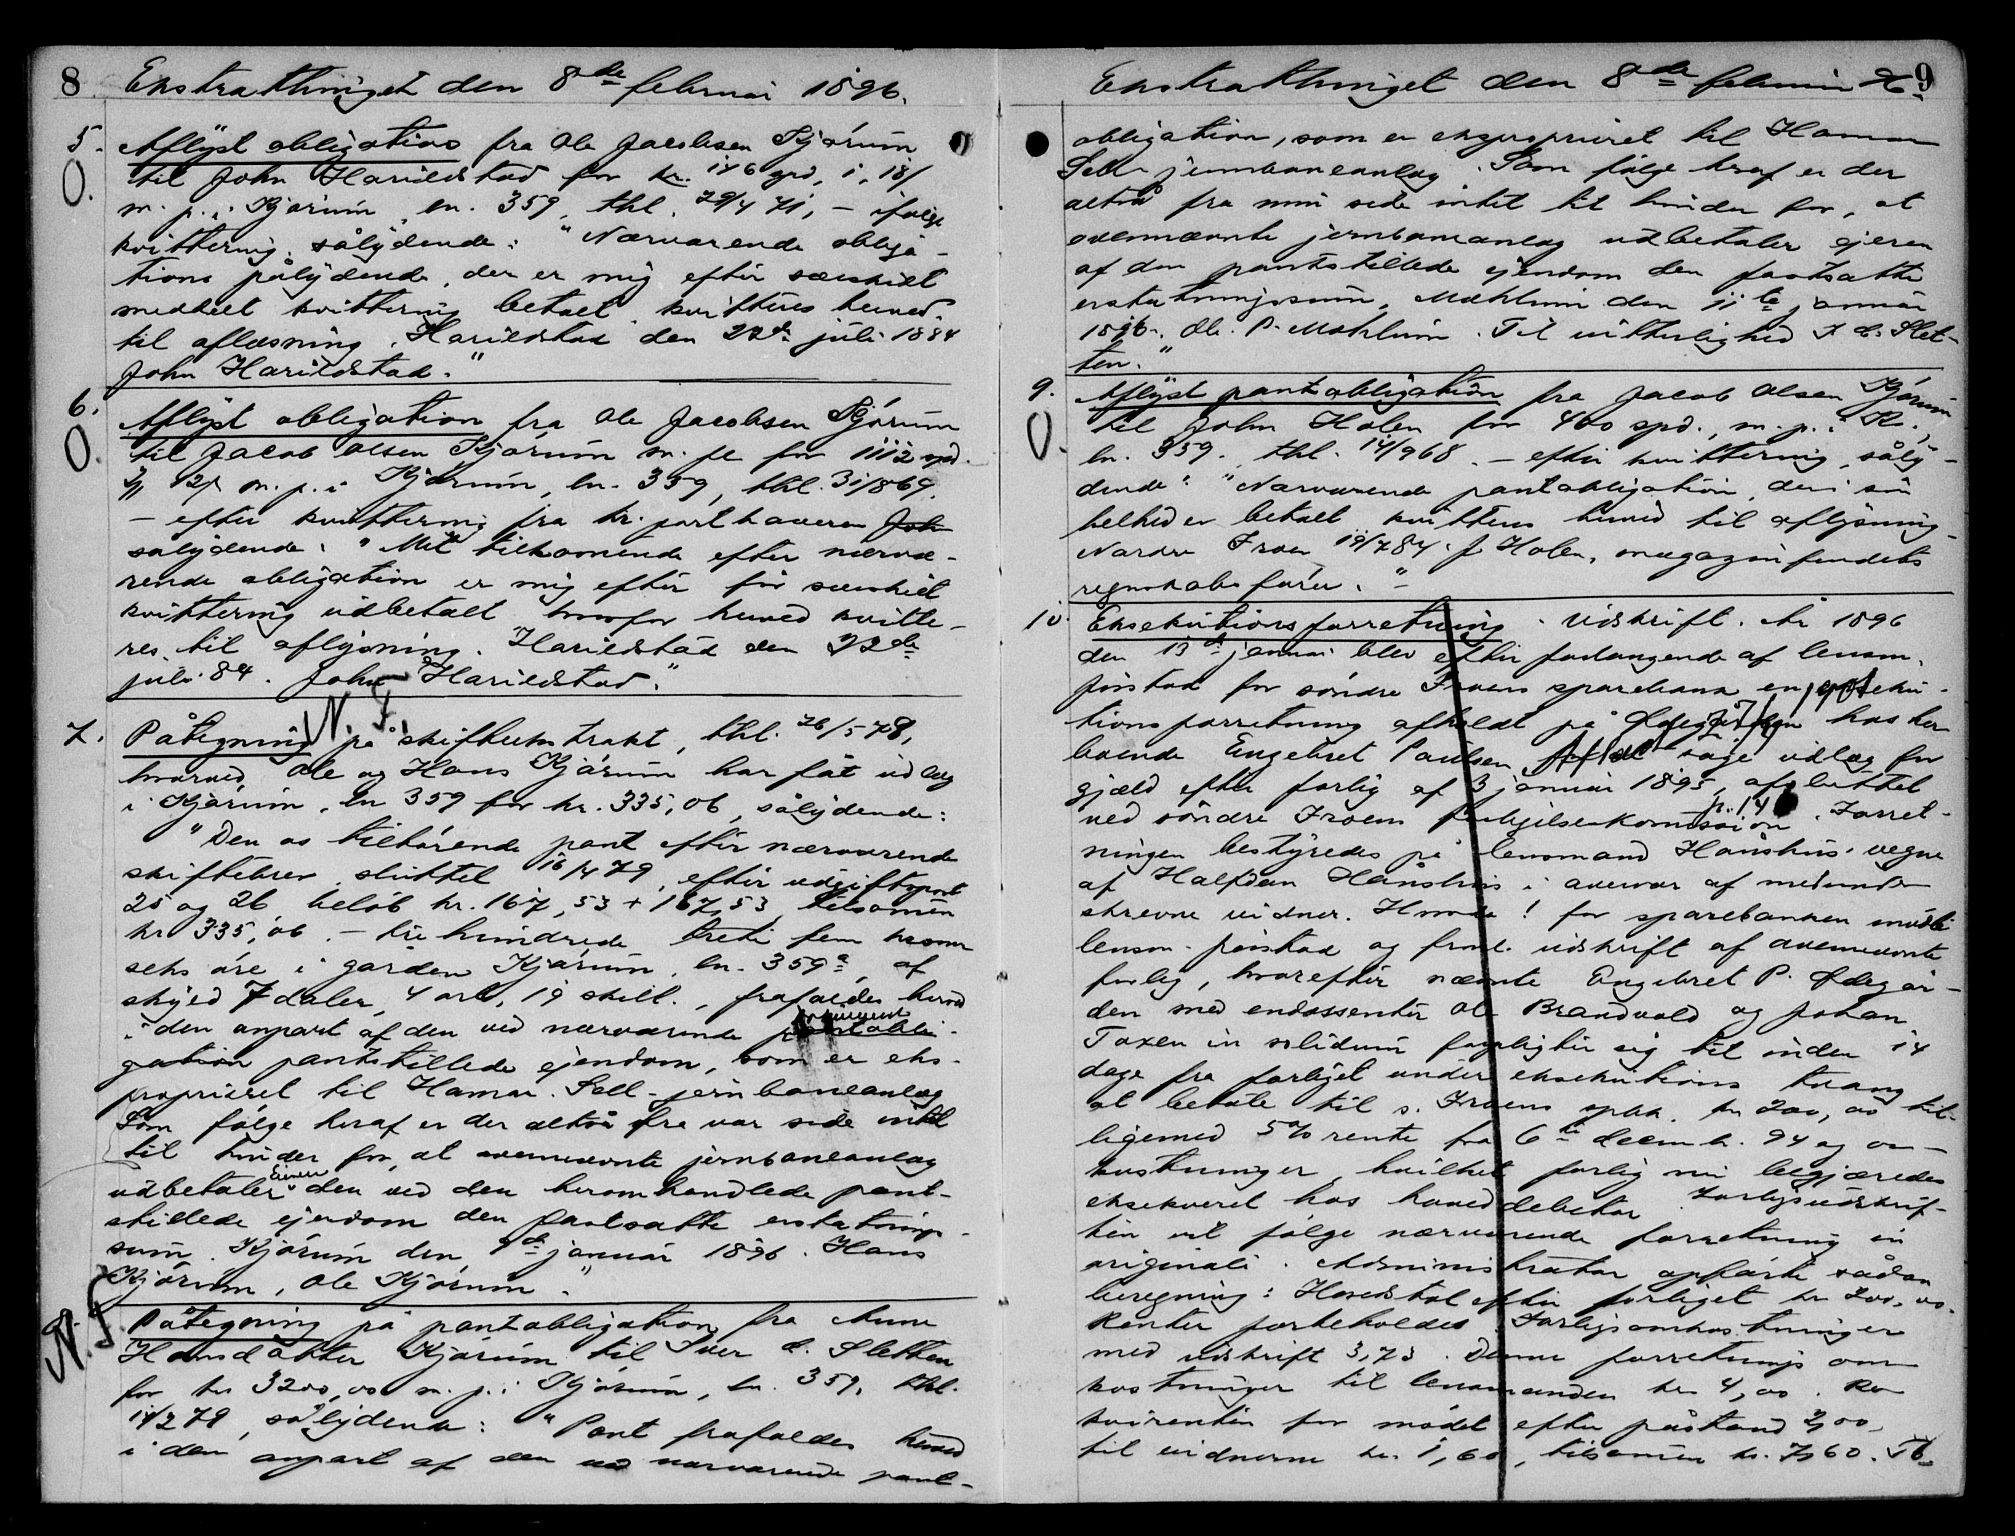 8 Ekstratthinget den 8de februar 1896.
5. Aflyst obligation fra Ole Jacobsen Kjórum
O. til John Harildstad for kr. 146 spd, i, 18/
m. p. i Kjórum, ln. 359, thl. 29/4 71, – ifølge
kvittering, sålydende: "Nærværende obliga-
tions pålydende, der er mig efter særskilt
meddelt kvittering betalt kvitteres herved
til aflæsning. Harildstad den 22de juli 1884
John Harildstad."
6. Aflyst obligation fra Ole Jacobsen Kjórum
O. til Jacob Olsen Kjórum m. fl for 1112 spd.
12/ m. p. i Kjórum, ln. 359, thl. 31/8 69.
– efter kvittering fra hr. parthaveren Joh
sålydende: "Mit tilkommende efter nærvæ-
rende obligation er mig efter før særskilt
kvittering udbetalt hvorfor herved kvitte-
res til aflysning. Harildstad den 22de
juli 84. John Harildstad."
N. F.
7. Påtegning på skifteekstrakt, thl. 26/5 79,
hvorved Ole og Hans Kjórum har fåt udlæg
i Kjórum, ln 359 for kr. 335,06, sålydende:
"Den os tilhørende pant efter nærværende
skiftebrev, sluttet 16/4 79, efter udgiftspost
25 og 26 beløb kr. 167,53 + 167,53, tilsammen
kr 335,06. – tre hundrede treti fem kroner
seks øre i gården Kjórum, ln. 359a, af
skyld 7 daler, 4 ort, 19 skill., frafaldes herved
i den anpart af den ved nærværende pantobli-
gation pantstillede ejendom, som er eks-
proprieret til Hamar-Sell-jernbaneanlæg
Som følge heraf er der altså fra vor side intet
til hinder for, at ovennævnte jernbaneanlæg
udbetaler Eieren den ved den heromhandlede pant-
stillede ejendom den fastsatte erstatnings-
sum. Kjórum den 9de januar 1896. Hans
Kjórum, Ole Kjórum."
N. F.
Påtegning på pantobligation fra Anne
Hansdatter Kjórum til Iver E. Sletten
for kr 3200,00 m. p. i Kjórum, ln. 359, thl.
14/2 79, sålydende: "Pant frafaldes herved
i den anpart af den ved nærværende pant-
Ekstratthinget den 8de februar 96 9
obligation, som er eksproprieret til Hamar
Sell-jernbaneanlæg. Som følge heraf er der
altså fra min side intet til hinder for, at
ovennævnte jernbaneanlæg udbetaler ejeren
af den pantstillede ejendom den fastsatte
erstatningssum, Mæhlum den 11te januar
1896. Ole P. Mæhlum. Til vitterlighed I. E. Slet-
ten."
9. Aflyst pantobligation fra Jacob Olsen Kjórum
O. til John Holen for 400 spd., m. p. i K.,
ln. 359., thl. 14/9 68. – efter kvittering, såly-
dende: "Nærværende pantobligation, der i sin
helhed er betalt kvitteres herved til aflysning
Nordre Froen 19/7 84. J. Holen, magazinfondets
regnskabsfører."
10. Eksekutionsforretning. Udskrift. År 1896
den 13de januar blev efter forlangende af lensm.
Jörstad for söndre Froens sparebank en ekseku-
tionsforretning afholdt på Ødegården hos her
boende Engebret Paulsen for at søge udlæg for
gjæld efter forlig af 3 januar 1895, afsluttet
ved söndre Froens forligelseskomission p. 14. Forret-
ningen bestyredes på lensmand Hånshus' vegne
af Halfdan Hånshus i overvær af medunder
skrevne vidner. Hvorda! for sparebanken mødte
lensm. Jörstad og freml. udskrift af ovennævnte
forlig, hvorefter nævnte Engebret P. Ødegår-
den med endossenter Ole Brandvold og Johan
Toxen in solidum forpligter sig til inden 14
dage fra forliget under eksekutions tvang
at betale til s. Froens spbk. kr 200,00 til-
ligemed 5% rente fra 6te decemb. 94 og om-
kostninger, hvilket forlig nu begjæredes
eksekveret hos hoveddebitor. Forligsudskrif-
ten vil følge nærværende forretning in
originali. Administrator opførte sådan
beregning: Hovedstol efter forliget kr 200,00.
Renter forbeholdes. Forligsomkostninger
med udskrift 3,73. Denne forretnings om-
kostninger til lensmanden kr 4,00. Re-
kvirenten for mødet efter påstand 2,00
til vidnerne kr. 1,60, tilsammen kr. 7,60.